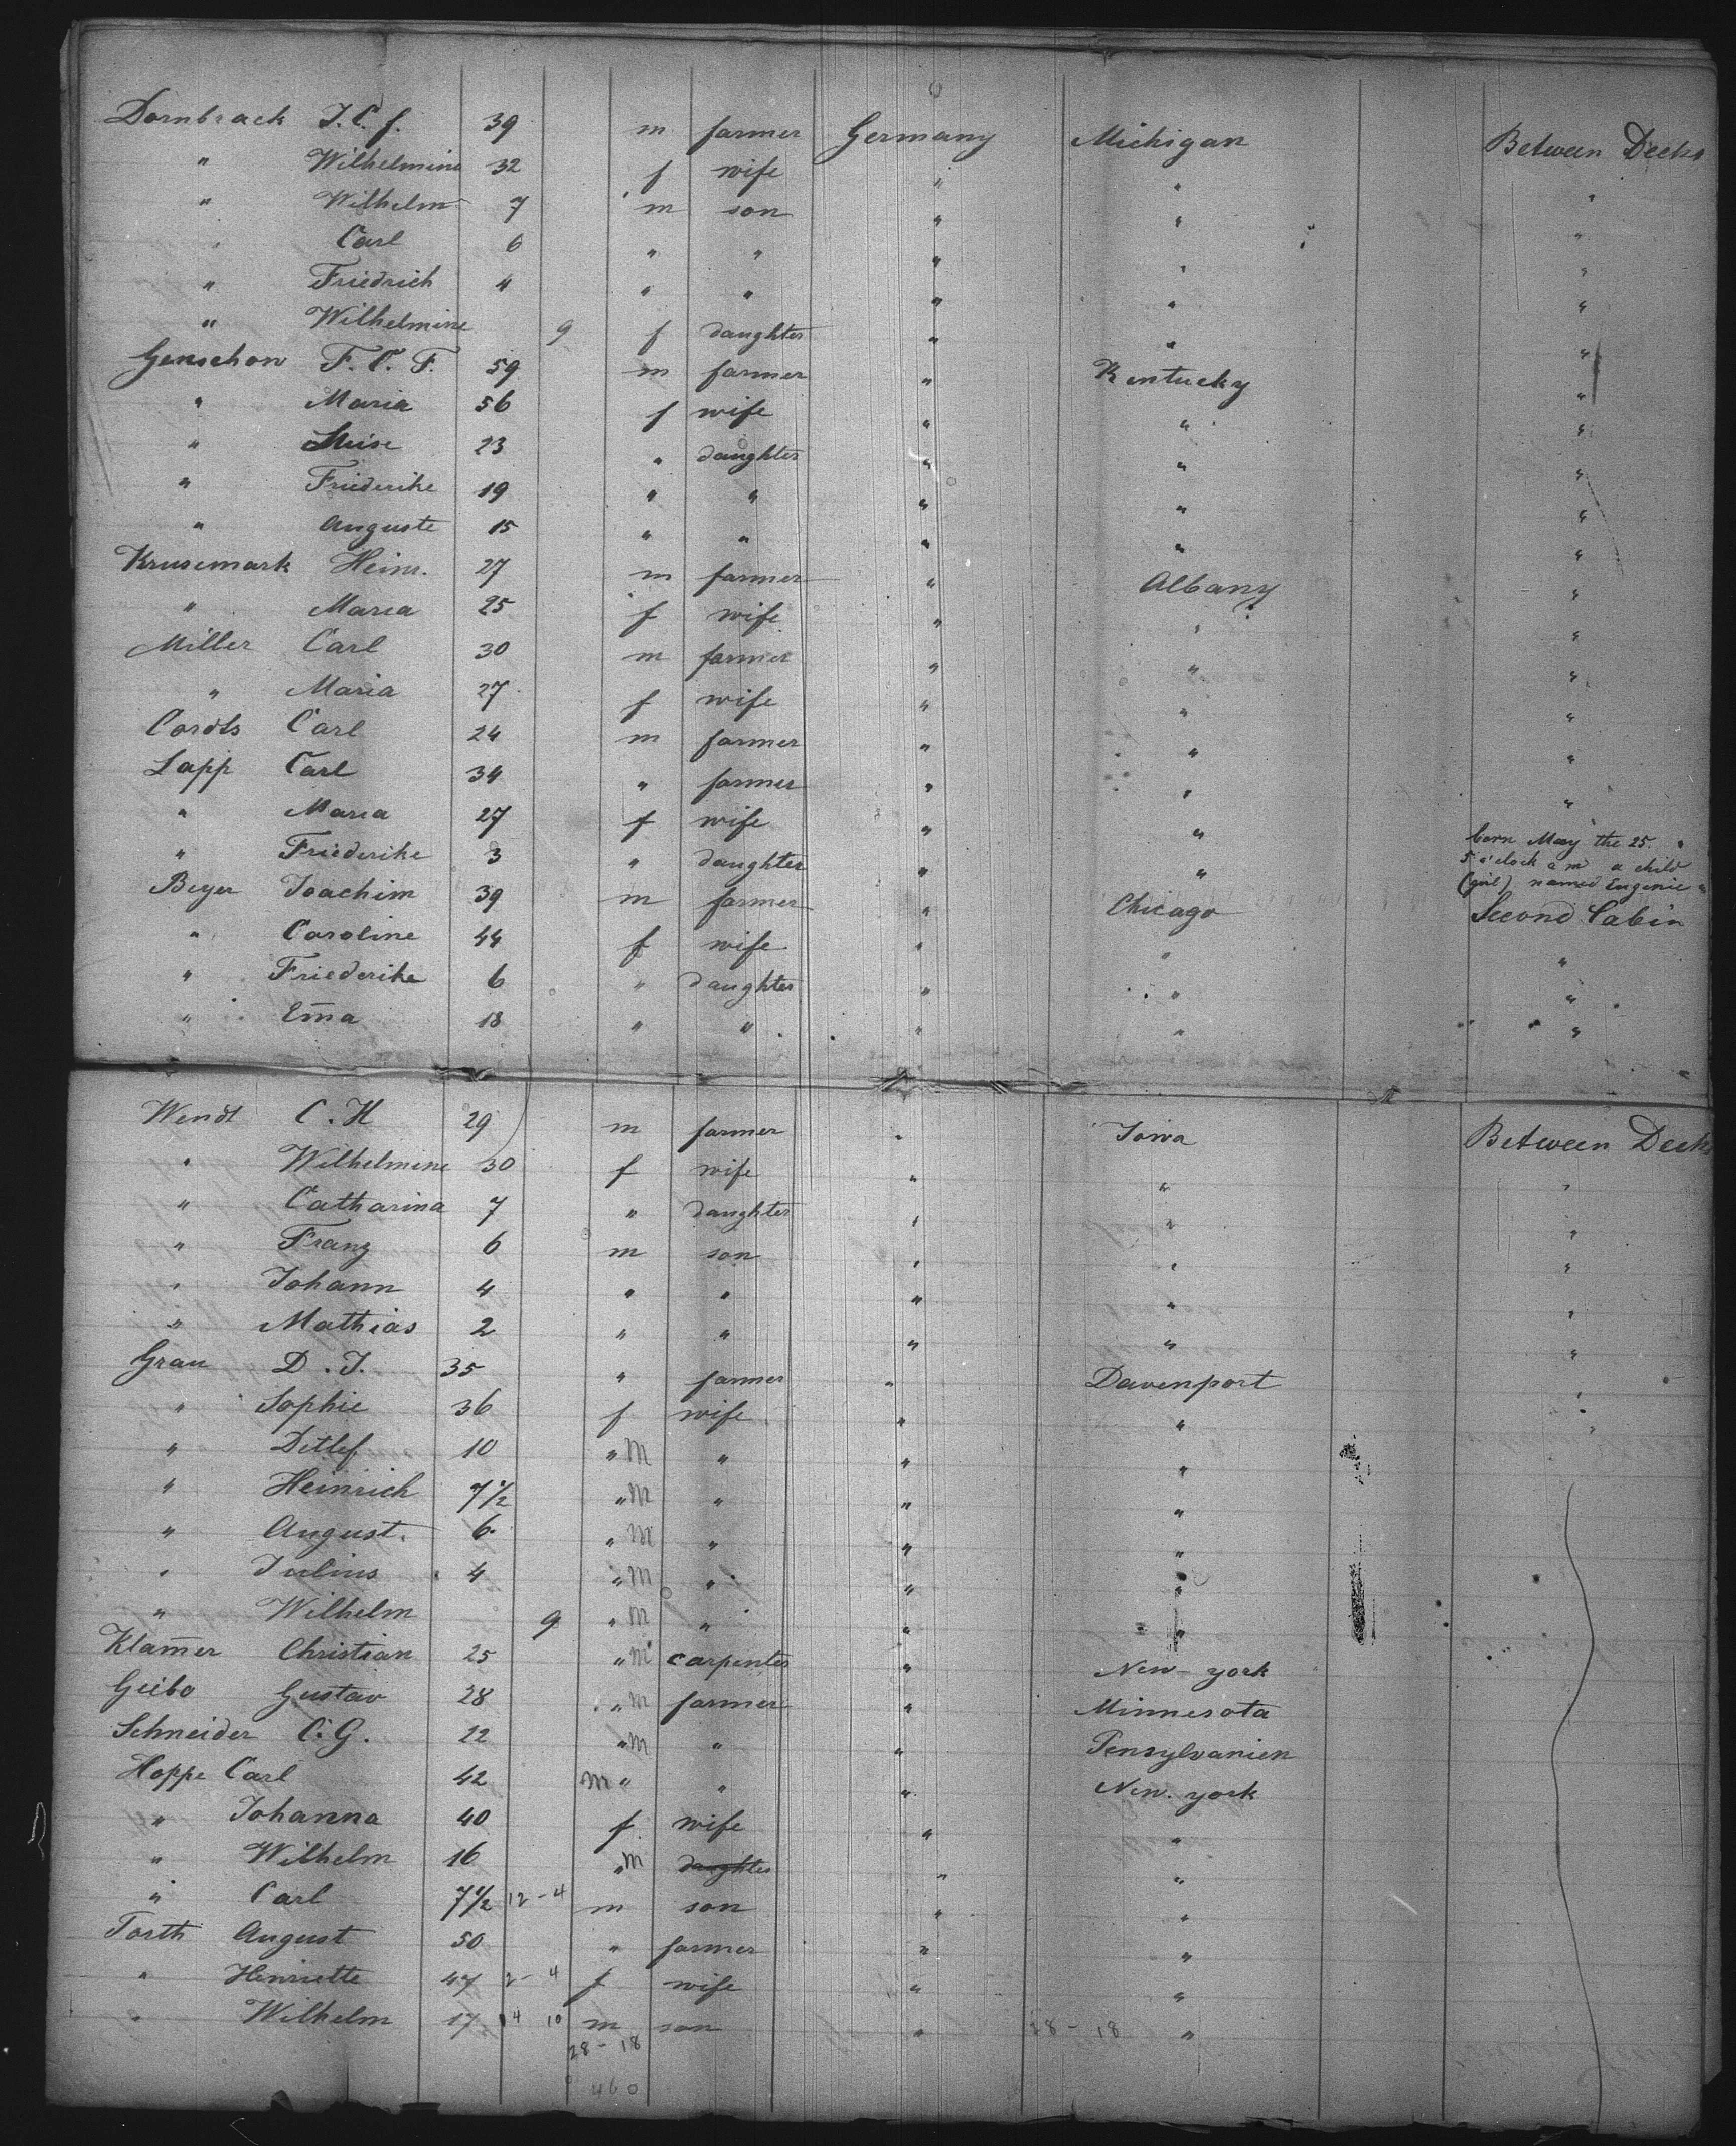 Dornbrack J. C. f. 39 m farmer Germany Michigan Between Decks
" Wilhelmine 32 f wife " " "
" Wilhelm 7 m son " " "
" Carl 6 " " " " "
" Friedrich 4 " " " " "
" Wilhelmine 9 f daughter " " "
Genschon F. C. F. 59 m farmer " Kentucky "
" Maria 56 f wife " " "
" Luise 23 " daughter " " "
" Friederike 19 " " " " "
" Auguste 15 " " " " "
Krusemark Heinr. 27 m farmer " Albany "
" Maria 25 f wife " " "
Miller Carl 30 m farmer " " "
" Maria 27 f wife " " "
Cordts Carl 24 m farmer " " "
Lapp Carl 34 " farmer " " "
" Maria 27 f wife " " born May the 25. "
" Friederike 3 " daughter " " 5 o'clock a m a child
(girl) named Eugenie "
Beyer Joachim 39 m farmer " Chicago Second Cabin
" Caroline 44 f wife " " "
" Friederike 6 " daughter " " "
" Em̅a 18 " " " " "
Wendt C. H 29 m farmer " Iowa Between Decks
" Wilhelmine 30 f wife " " "
" Catharina 7 " daughter " " "
" Franz 6 m son " " "
" Johann 4 " " " " "
" Mathias 2 " " " " "
Grau D. J. 35 " farmer " Davenport "
" Sophie 36 f wife " " "
" Detlef 10 " m " " "
" Heinrich 7 1/2 " m " " "
" August. 6 " m " " "
" Julius 4 " m " " "
" Wilhelm 9 " m " " "
Klam̅er Christian 25 " m carpenter " New-york
Geibo Gustav 28 " m farmer " Minnesota
Schneider C. G. 22 " m " " Pensylvanien
Hoppe Carl 42 m " " " New-york
" Johanna 40 f wife " "
" Wilhelm 16 " m daughter " "
" Carl 7 1/2 12-4 m son " "
Torth August 50 " farmer " "
" Henriette 47 2-4 f wife " "
" Wilhelm 17 14 10 m son " 28-18 "
28-18
460